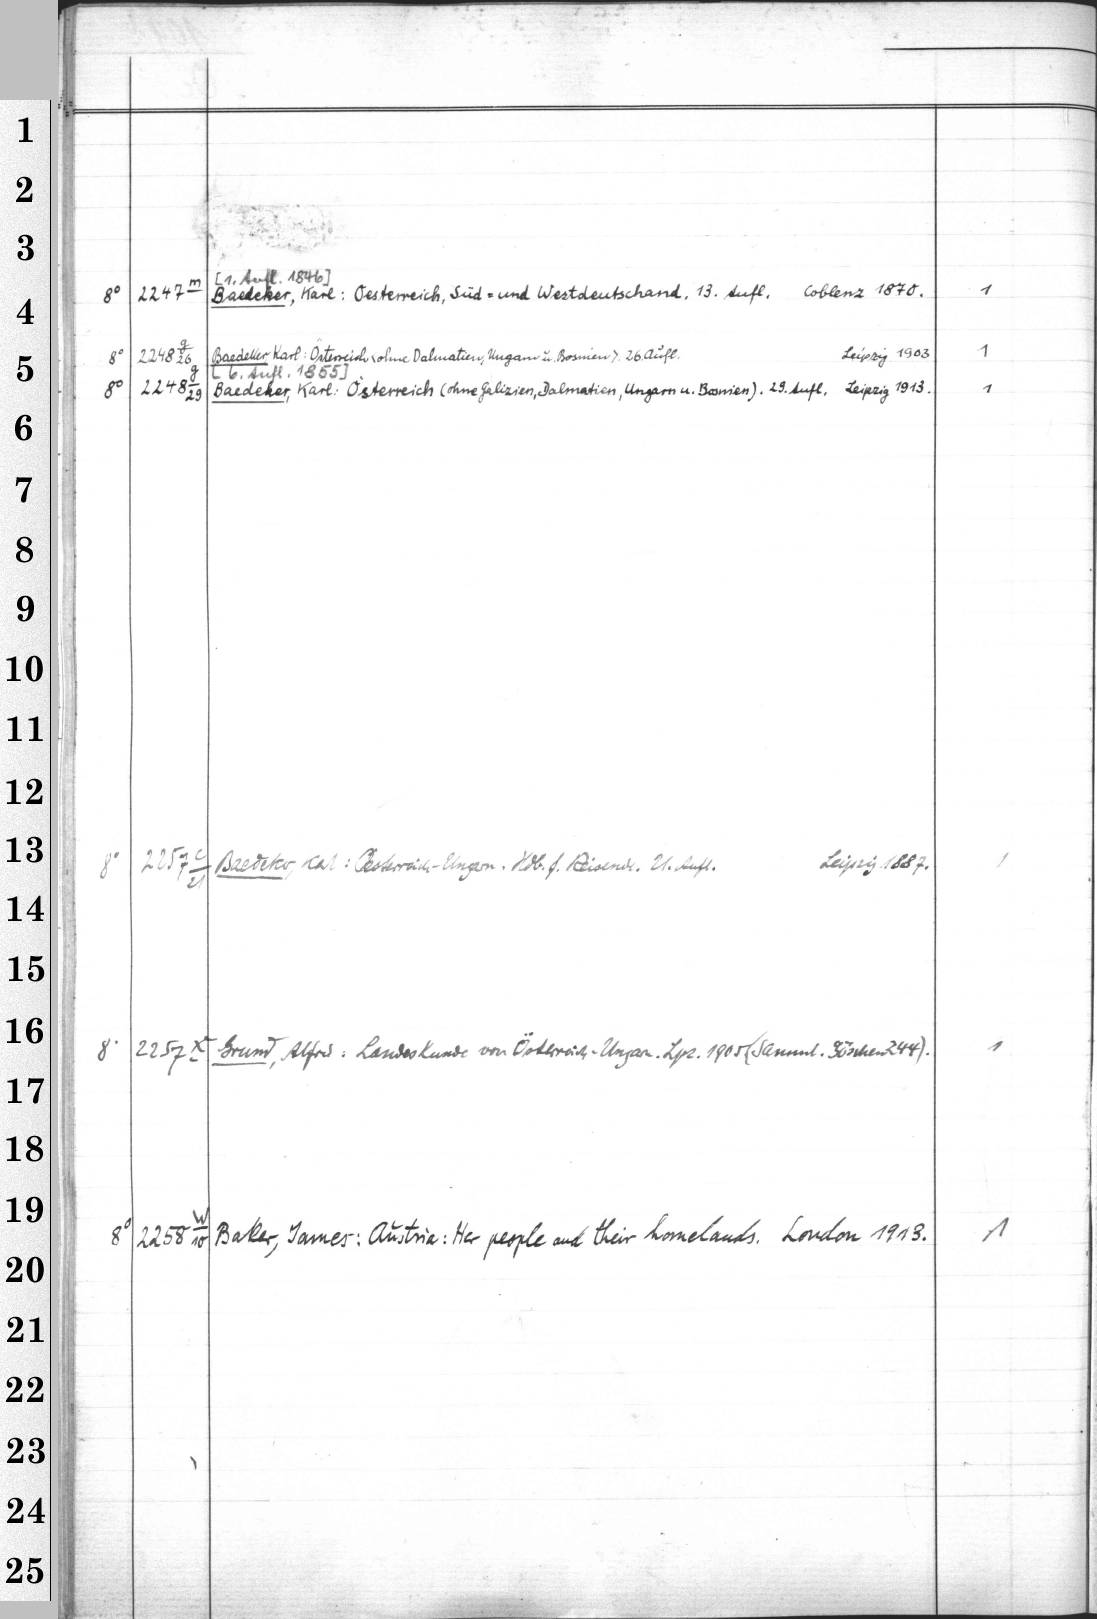 1
2
3
[1. Aufl. 1846]
4 8° 2247 m Baedeker, Karl: Oesterreich, Süd= und Westdeutschand. 13. Aufl. Coblenz 1870. 1
5 8° 2248 g/26 Baedeker Karl: Österreich <ohne Dalmatien, Ungarn u. Bosnien>. 26. Aufl. Leipzig 1903 1
[6. Aufl. 1855]
8° 2248 g/29 Baedeker, Karl: Österreich (ohne Galizien, Dalmatien, Ungarn u. Bosnien). 29. Aufl. Leipzig 1913. 1
6
7
8
9
10
11
12
13 8° 2257 c/21 Baedeker, Karl: Oesterreich-Ungarn. Hdb. f. Reisende. 21. Aufl. Leipzig 1887. 1
14
15
16 8° 2257 Grund, Alfred: Landeskunde von Österreich-Ungarn. Lpz. 1905 (Samml. Göschen 244). 1
17
18
19 8° 2258 w/10 Baker, James: Austria: Her people and their homelands. London 1913. 1
20
21
22
23
24
25